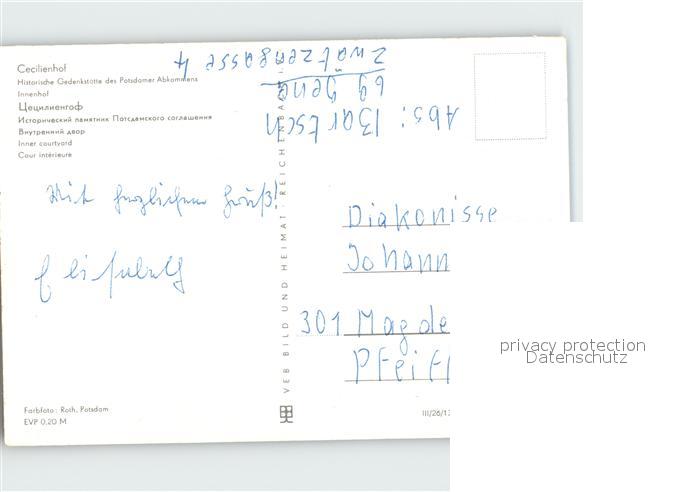 Cecilienhof
Historische Gedenkstätte des Potsdamer Abkommens
Innenhof
Цецилиенгоф
Исторический памятник Потсдамского соглашения
Внутренний двор
Inner courtyard
Cour intérieure
Mit herzlichem Gruß!
Elisabeth
Farbfoto: Roth, Potsdam
EVP 0,20 M
VEB BILD UND HEIMAT REICHENBACH
Abs: Bartsch
69 Jena
Zwätzengasse 4
Diakonisse
Johann
301 Magde
Pfeif
III/26/13
privacy protection
Datenschutz